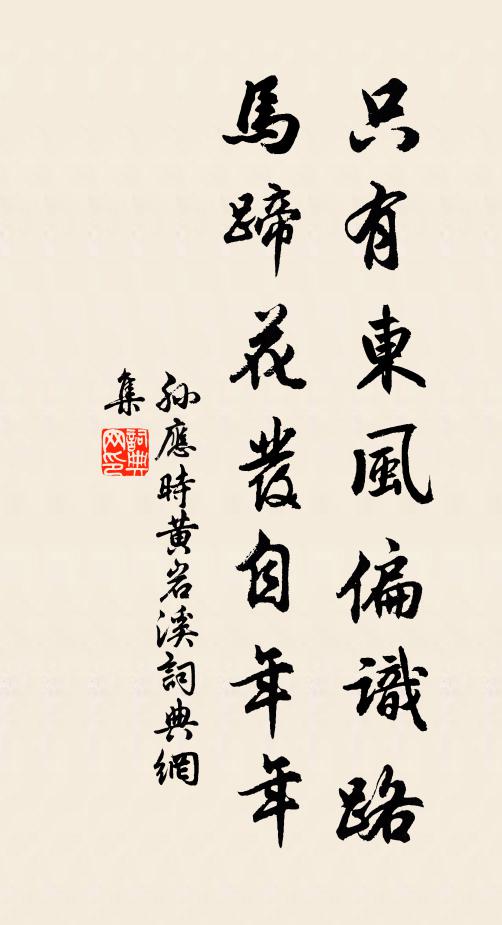 只有東風偏識路
馬蹄花發自年年
孫應時黃岩溪詞典網
集
詞典網印